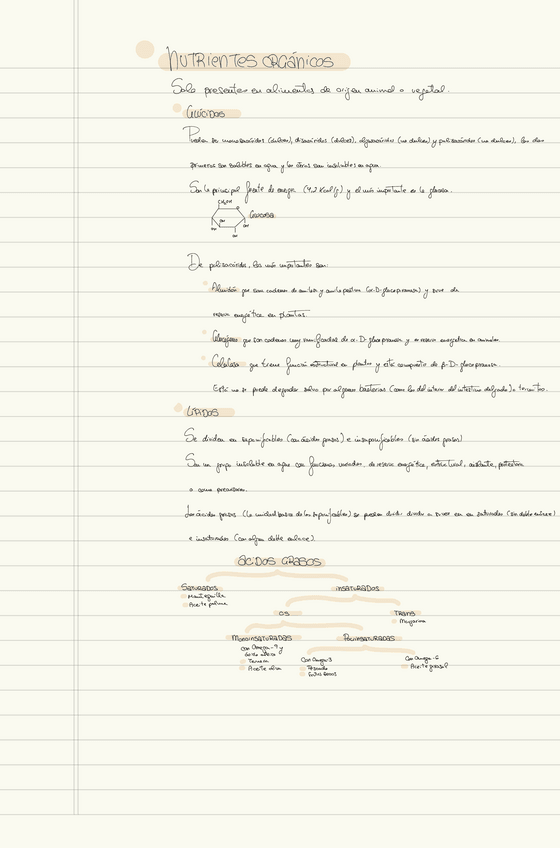 NUTRIENTES ORGÁNICOS
Solo presentes en alimentos de origen animal o vegetal.
GLÚCIDOS
Pueden ser monosacáridos (dulces), disacáridos (dulces), oligosacáridos (no dulces) y polisacáridos (no dulces), los dos
primeros son solubles en agua y los otros son insolubles en agua.
Son la principal fuente de energía (4,2 Kcal/g) y el más importante es la glucosa.
CH₂OH
Glucosa
OH
OH
OH
De polisacáridos, los más importantes son:
Almidón que son cadenas de amilosa y amilopectina (α-D-glucopiranosa) y sirve de
reserva energética en plantas.
Glucógeno que son cadenas muy ramificadas de α-D-glucopiranosa y es reserva energética en animales.
Celulosa que tiene función estructural en plantas y está compuesto de β-D-glucopiranosa.
Este no se puede degradar salvo por algunas bacterias (como las del interior del intestino delgado) o
LÍPIDOS
Se dividen en saponificables (con ácidos grasos) e insaponificables (sin ácidos grasos)
Son un grupo insoluble en agua con funciones variadas, de reserva energética, estructural, aislante, protectora
o como precursores.
Los ácidos grasos (la unidad básica de los saponificables) se pueden dividir en saturados (sin doble enlace)
e insaturados (con algún doble enlace).
ÁCIDOS GRASOS
SATURADOS
INSATURADOS
Mantequilla
Aceite palma
CIS
TRANS
Margarina
MONOINSATURADAS
POLIINSATURADAS
Con Omega-9 y
ácido oleico
Ternera
Aceite oliva
Con Omega-3
Pescado
Frutos secos
Con Omega-6
Aceite girasol